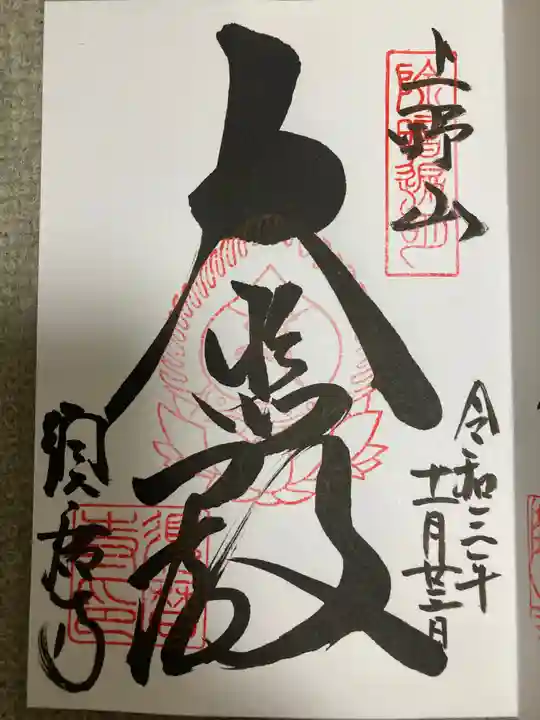 上野山
大悲殿
須磨寺
令和三年
十一月廿三日